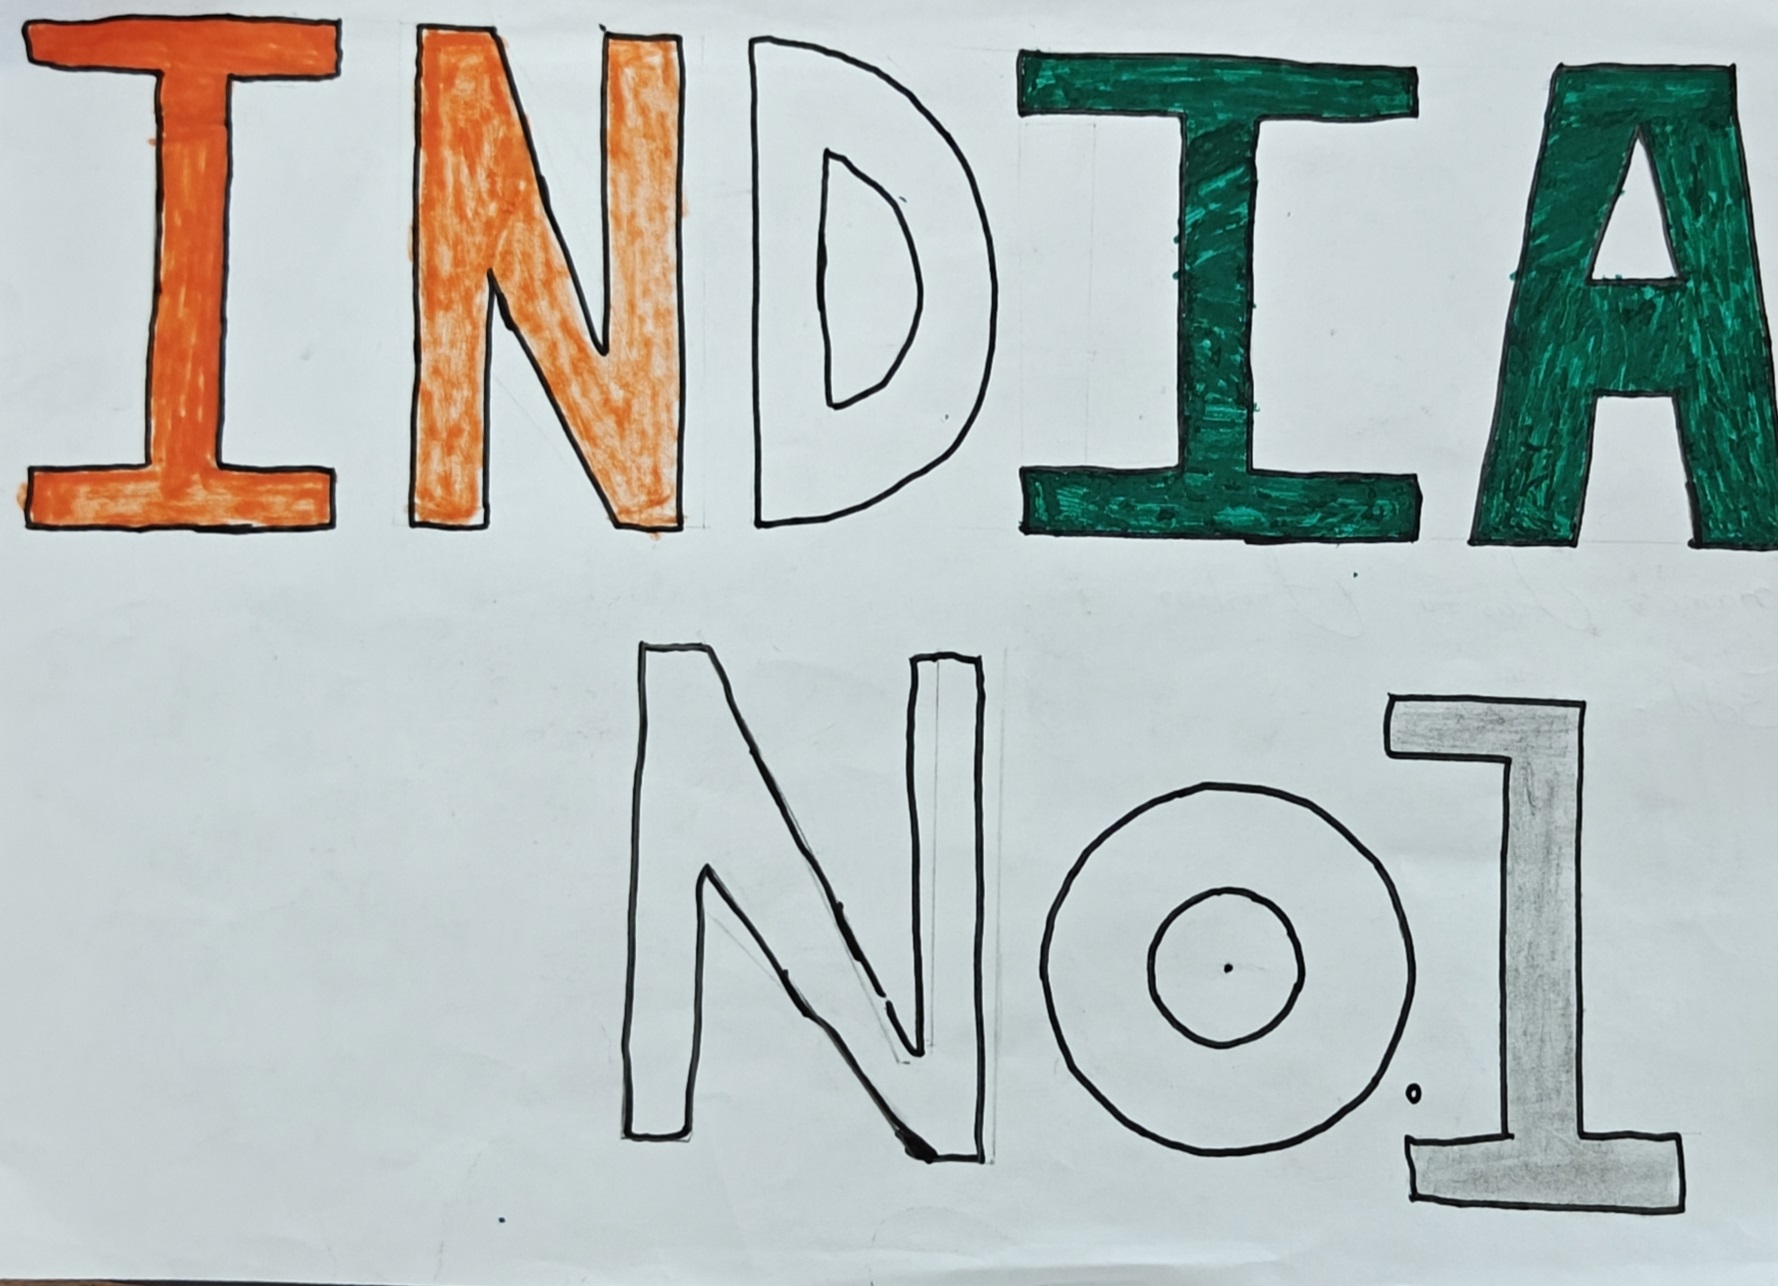 INDIA
No.1